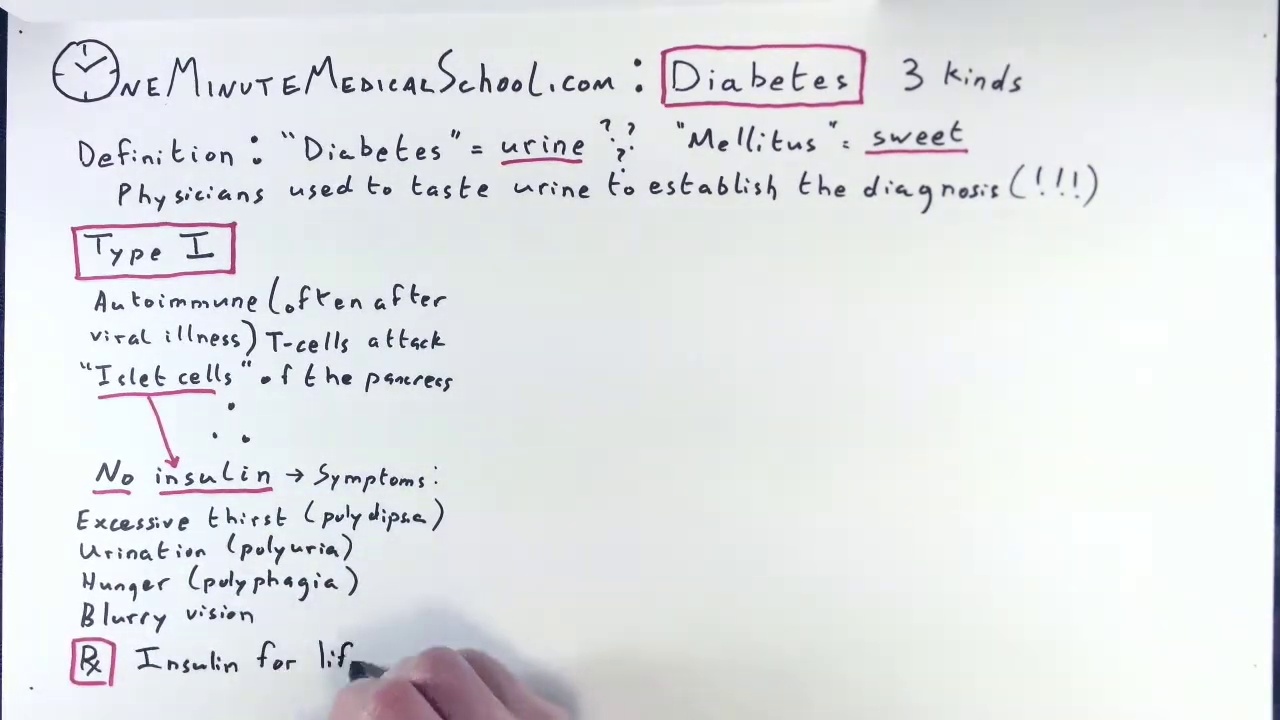 ONEMINUTEMEDICALSCHOOL.COM : Diabetes 3 kinds
Definition : "Diabetes" = urine ??? "Mellitus" = sweet
Physicians used to taste urine to establish the diagnosis (!!!)
Type I
Autoimmune (often after
viral illness) T-cells attack
"Islet cells" of the pancreas
∴
No insulin → Symptoms:
Excessive thirst (polydipsia)
Urination (polyuria)
Hunger (polyphagia)
Blurry vision
Rx Insulin for lif